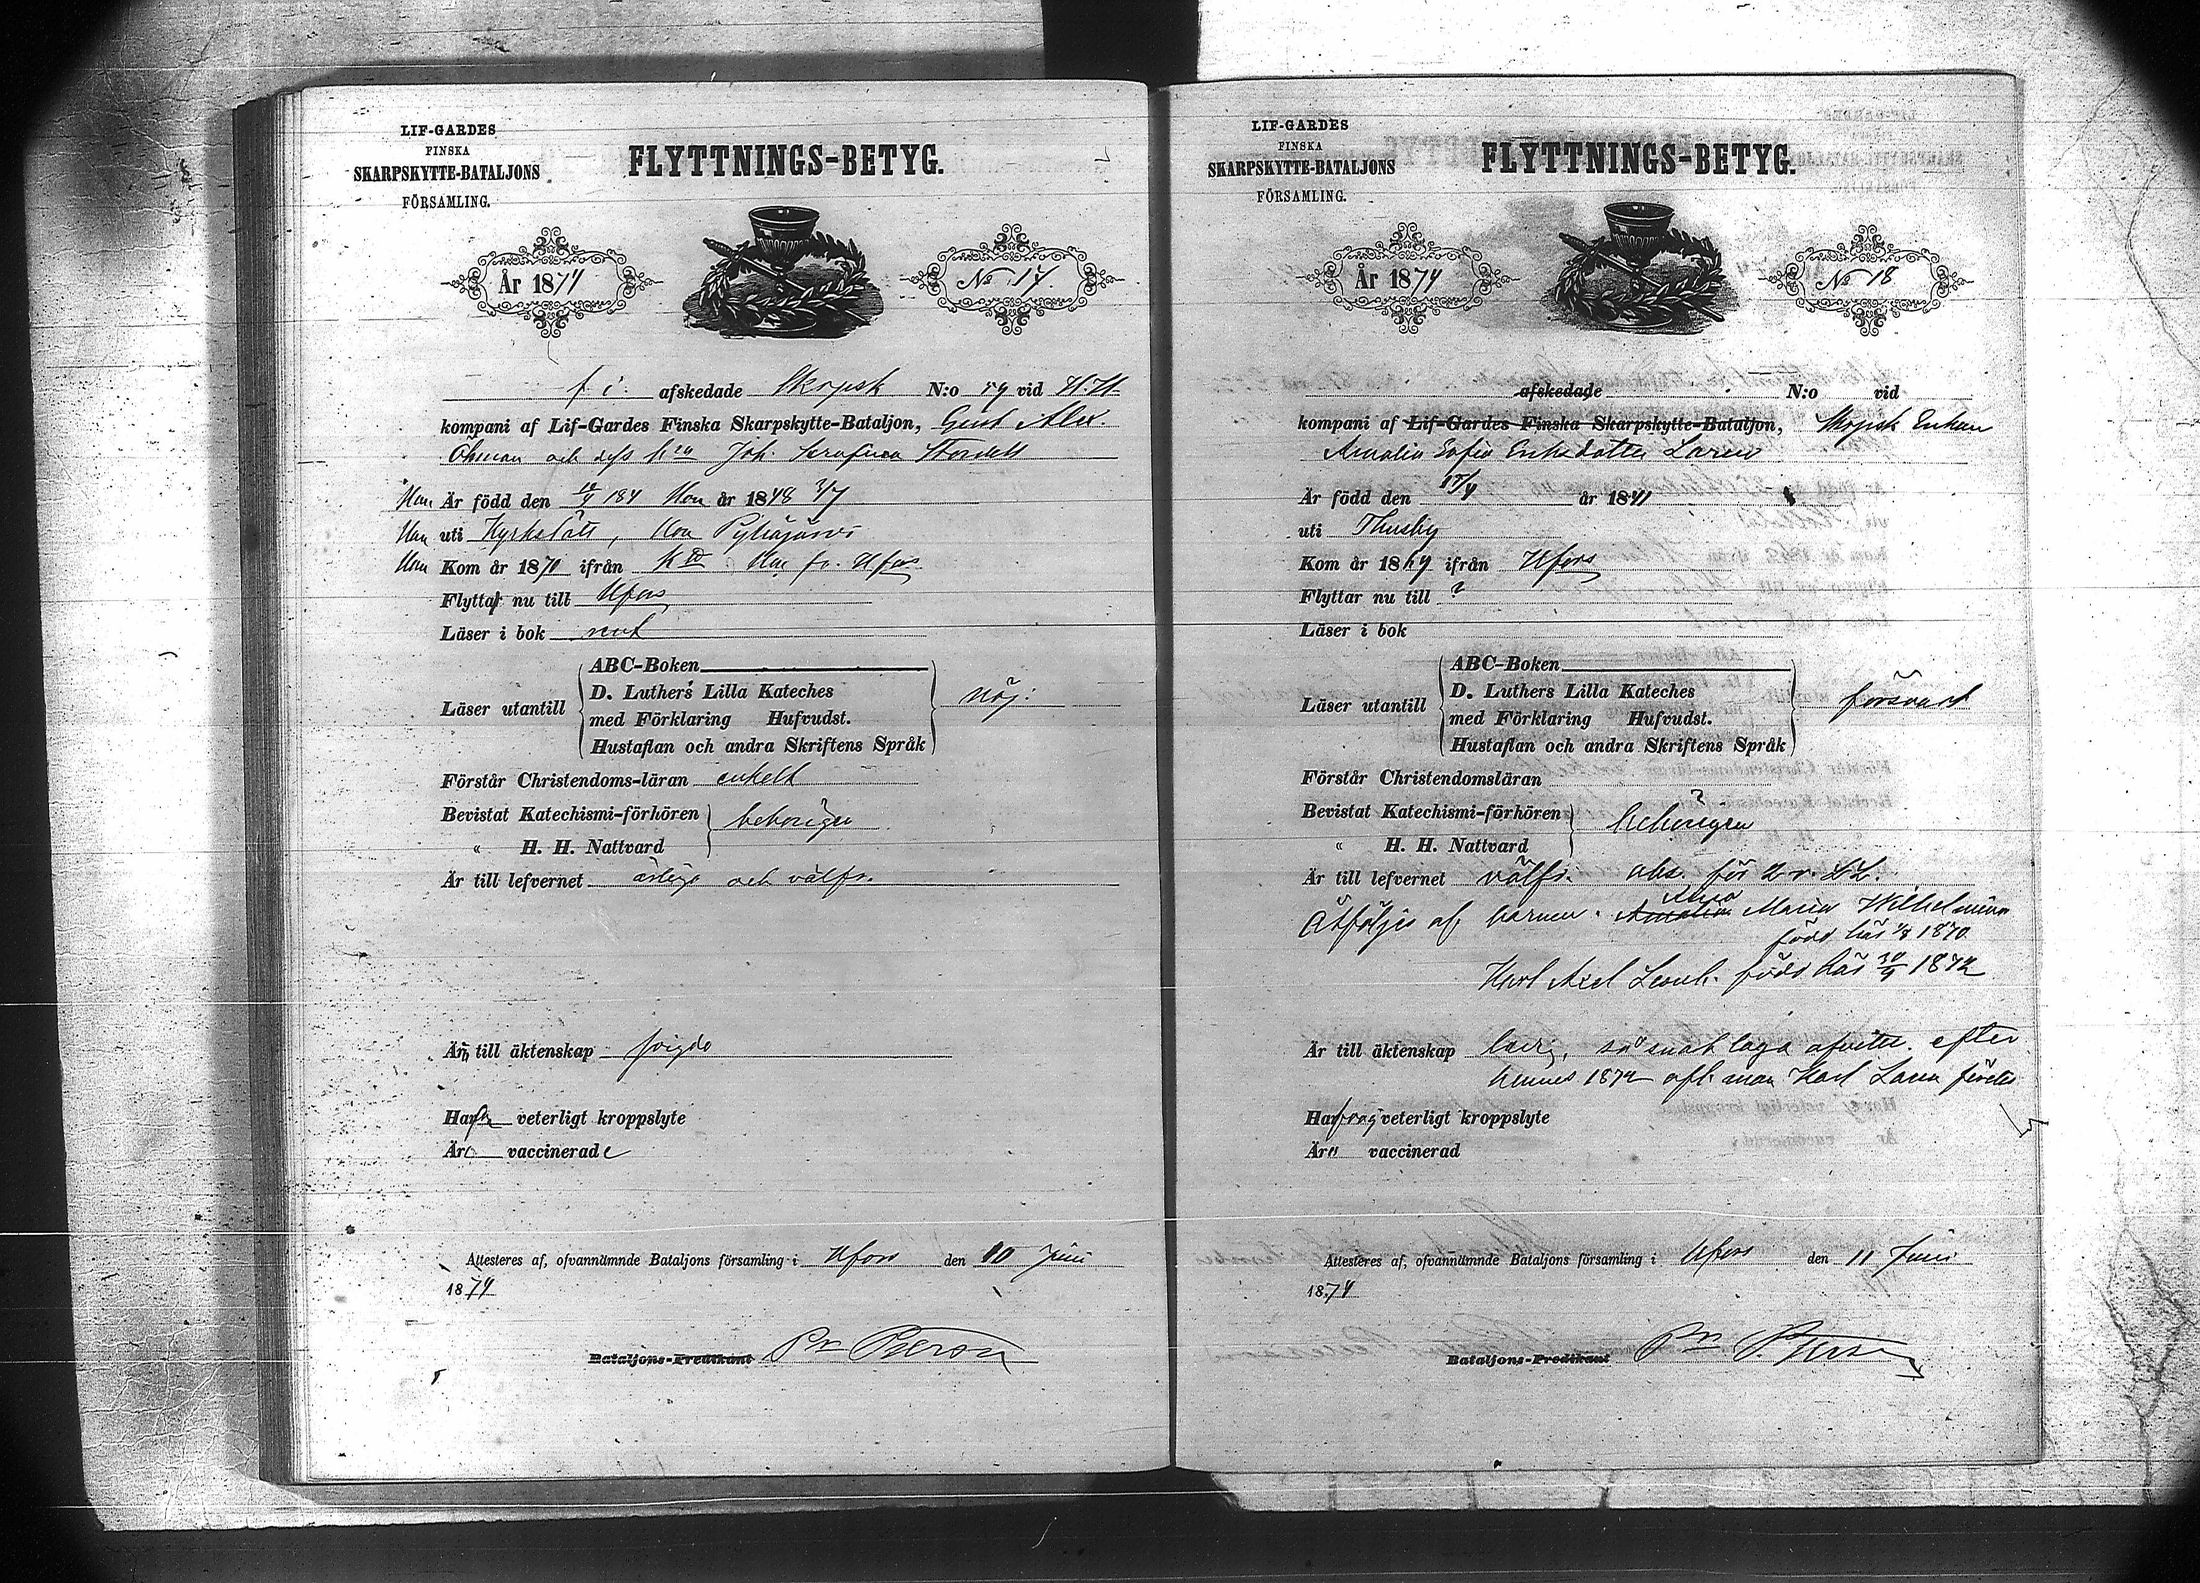 LIF-GARDES
FINSKA
SKARPSKYTTE-BATALJONS
FÖRSAMLING.
FLYTTNINGS-BETYG.
År 1874
No 17.
f. i. afskedade Skrpsk N:o 59 vid
kompani af Lif-Gardes Finska Skarpskytte-Bataljon, Gust Alex.
Öhman och dess h:u Joh. Serafina
Han Är född den Hon år 1848 3/7
Han uti Kyrkslätt, Hon Pyhäjärvi
Kom år 1870 ifrån Hfors
Flytta nu till Hfors
Läser i bok rent
Läser utantill
ABC-Boken
D. Luthers Lilla Kateches
med Förklaring Hufvudst.
Hustaflan och andra Skriftens Språk
nöj:
Förstår Christendoms-läran enkelt
Bevistat Katechismi-förhören
" H. H. Nattvard
behörigen
Är till lefvernet ärliga och välfr.
Är till äktenskap vigda
Haf veterligt kroppslyte
Är vaccinerade
Attesteres af, ofvannämnde Bataljons församling i Hfors den 10 Juni
1874
Bataljons-Predikant
LIF-GARDES
FINSKA
SKARPSKYTTE-BATALJONS
FÖRSAMLING.
FLYTTNINGS-BETYG.
År 1874
No 18
afskedade N:o vid
kompani af Lif-Gardes Finska Skarpskytte-Bataljon, Skrpsk Enkan
Amalia Sofia Eriksdotter Laren
Är född den år 1841
uti Thusby
Kom år 1869 ifrån Hfors
Flyttar nu till ?
Läser i bok
Läser utantill
ABC-Boken
D. Luthers Lilla Kateches
med Förklaring Hufvudst.
Hustaflan och andra Skriftens Språk
försvarl
Förstår Christendomsläran
Bevistat Katechismi-förhören
" H. H. Nattvard
behörigen
Är till lefvernet välfr. abs. för
Åtföljes af barnen. Amalia Maria Wilhelmina
född här 1870
Karl Axel född här 1872
Är till äktenskap ledig, så snart laga afvittr. efter
hennes 1872 afl. man Karl Laren
Har veterligt kroppslyte
Är vaccinerad
Attesteres af, ofvannämnde Bataljons församling i Hfors den 11 Juni
1874
Bataljons-Predikant